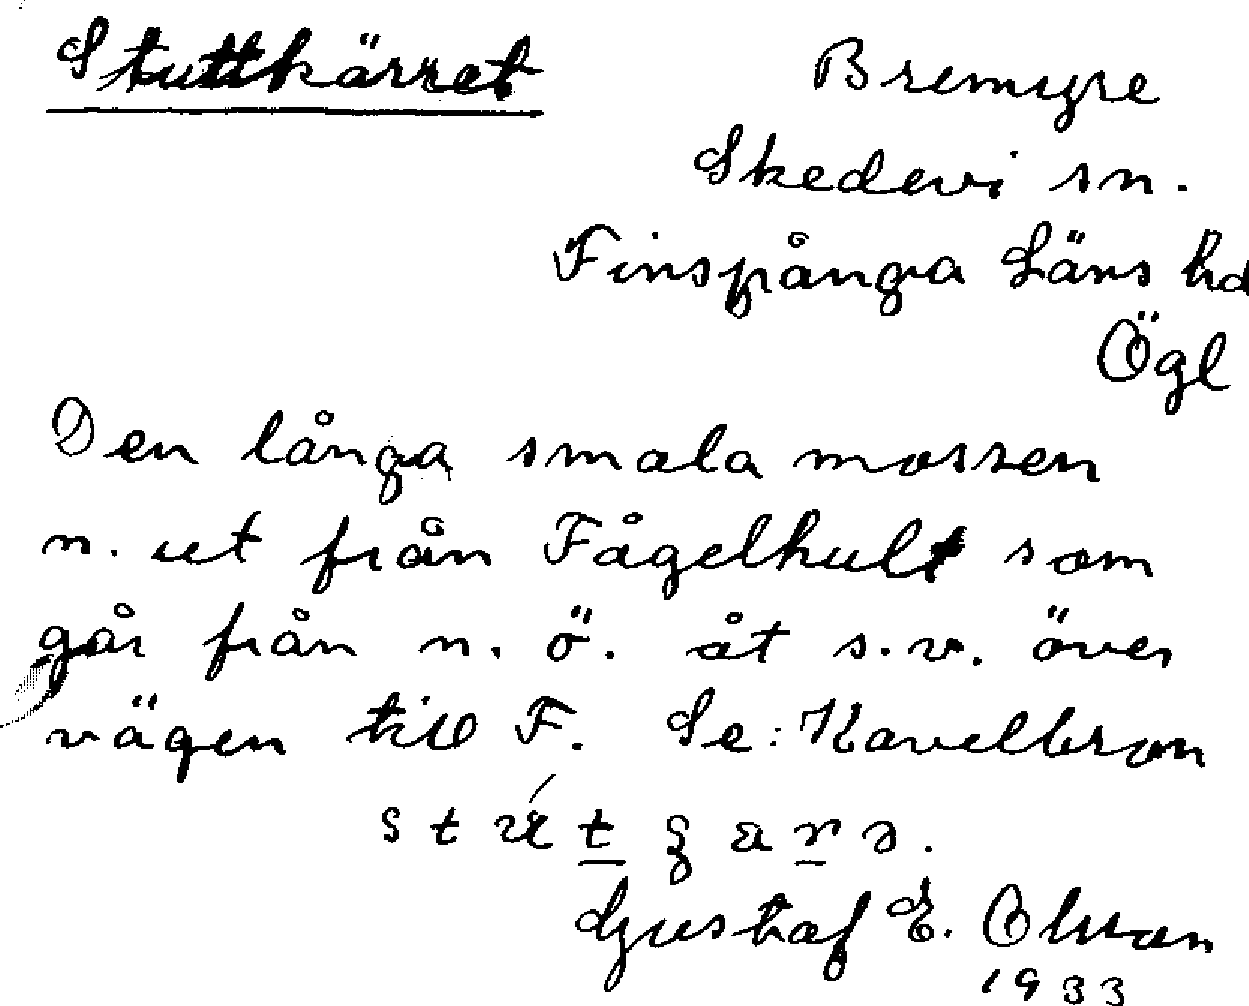 Stuttkärret
Bremyre
Skedevi sn.
Finspånga Läns hd
Ögl
Den långa smala mossen
n. ut från Fågelhult som
går från n. ö. åt s. v. över
vägen till F. Se: Kavelbron
Gustaf E. Olsson
1933